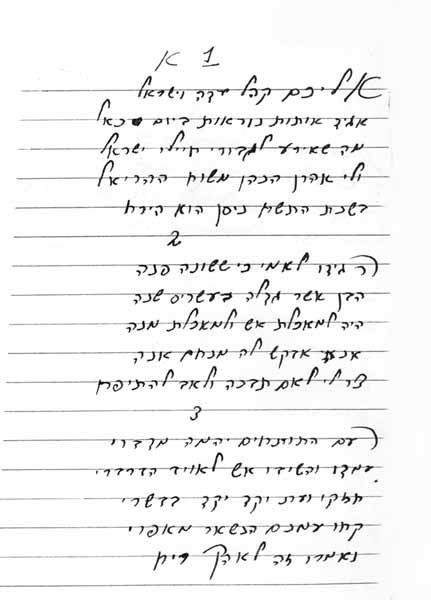 א 1
אליכם קהל עדה וישראל
אגיד אותות נוראות ביום כאל
מה שאירע לגבורי חיילי ישראל
ולי אהרן הכהן משוח ההריאל
בשנת התשח ניסן הוא הירח
2
הגידו לאמי כי ששונה פנה
הבן אשר גדלה בעשרים שנה
היה למאכלת אש ולמאכלת מנה
אנא אבקש לה מנחם אונה
צר לי לאם תבכה ולאב להתיפח
3
עם התותחים יהמה מדברי
עמדו והשיבו אש לאויב הדרברי
חזקו ועת יקד יקד בבשרי
קחו עמכם הנשאר מאפרי
נאמרו זה לאהרן ריח